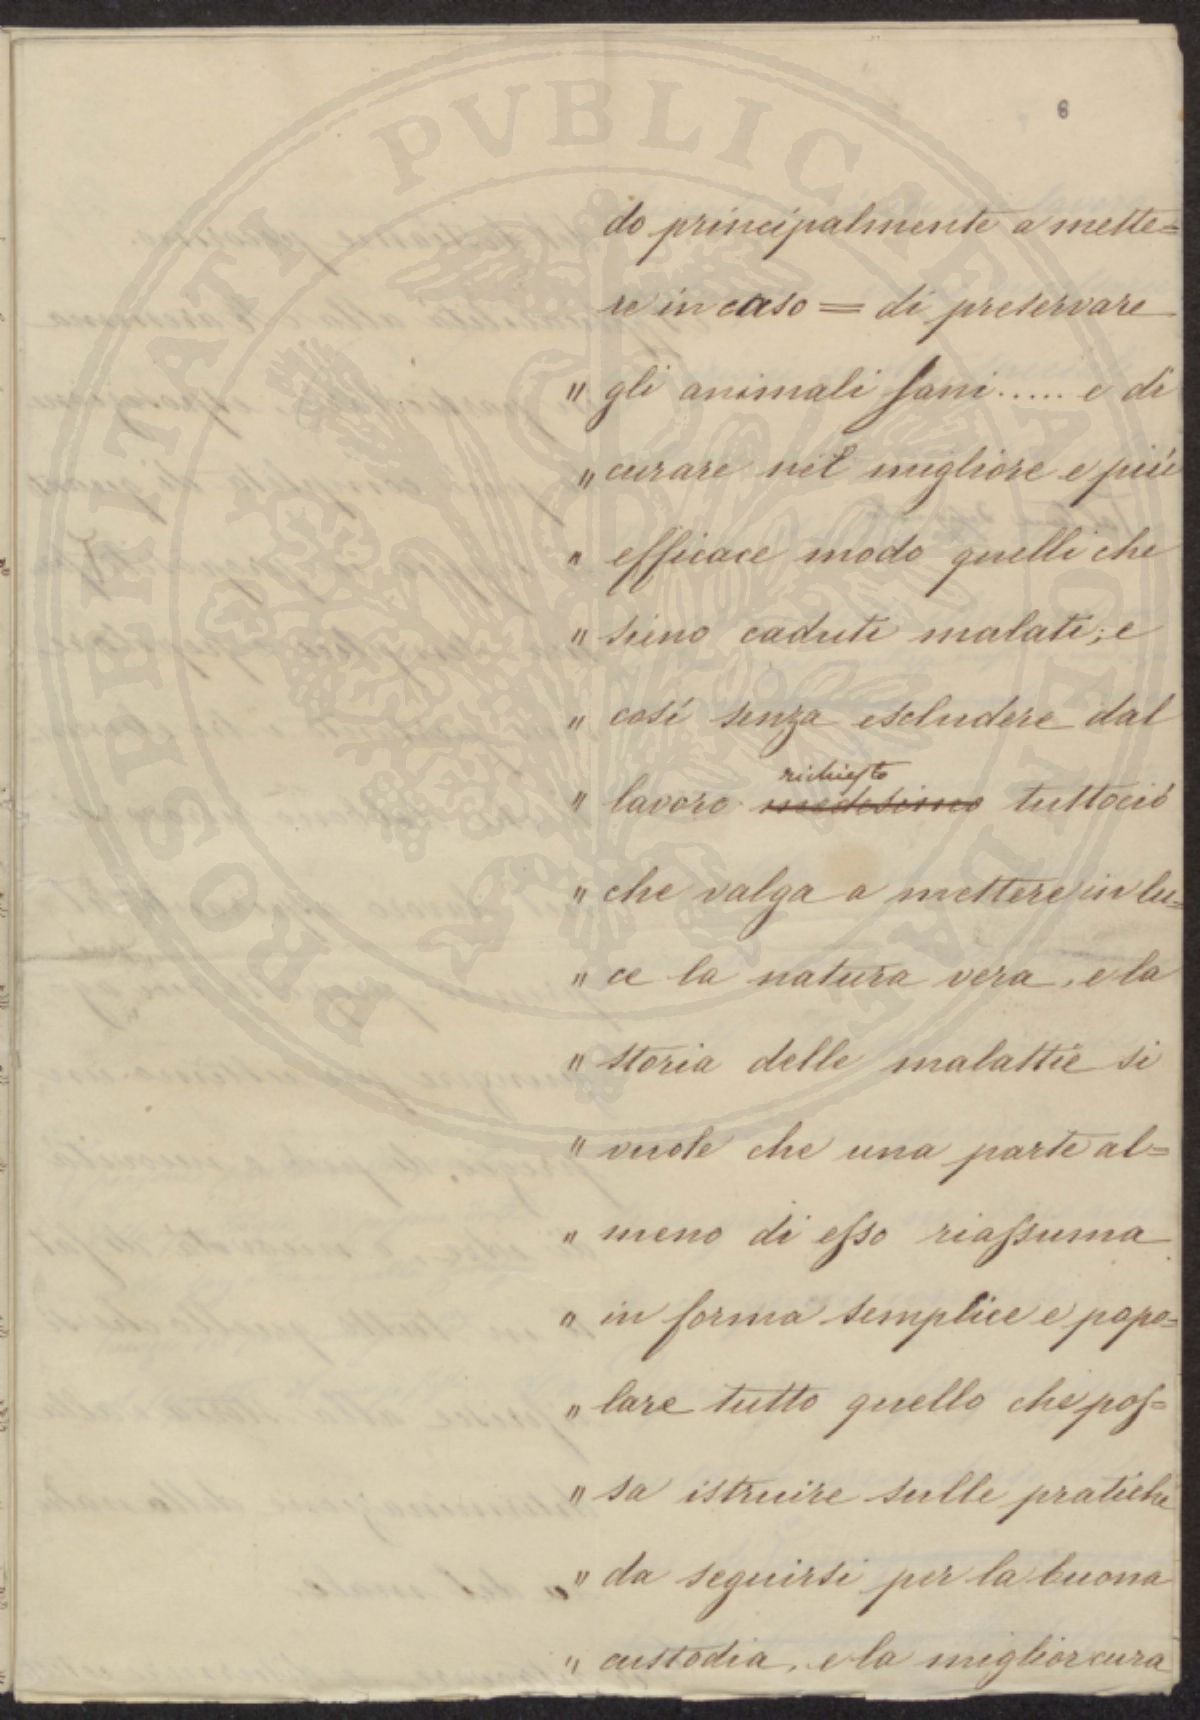 PROSPERITATI PVBLICAE AVGENDAE
6
do principalmente a mette=
re in caso = di preservare
" gli animali sani..... e di
" curare nel migliore e piú
" efficace modo quelli che
" sieno caduti malati; e
" cosí senza escludere dal
richiesto
" lavoro medesimo tuttoció
" che valga a mettere in lu=
" ce la natura vera, e la
" storia delle malattie si
" vuole che una parte al=
" meno di esso riassuma
" in forma semplice e popo=
" lare tutto quello che pos=
" sa istruire sulle pratiche
" da seguirsi per la buona
" custodia, e la miglior cura